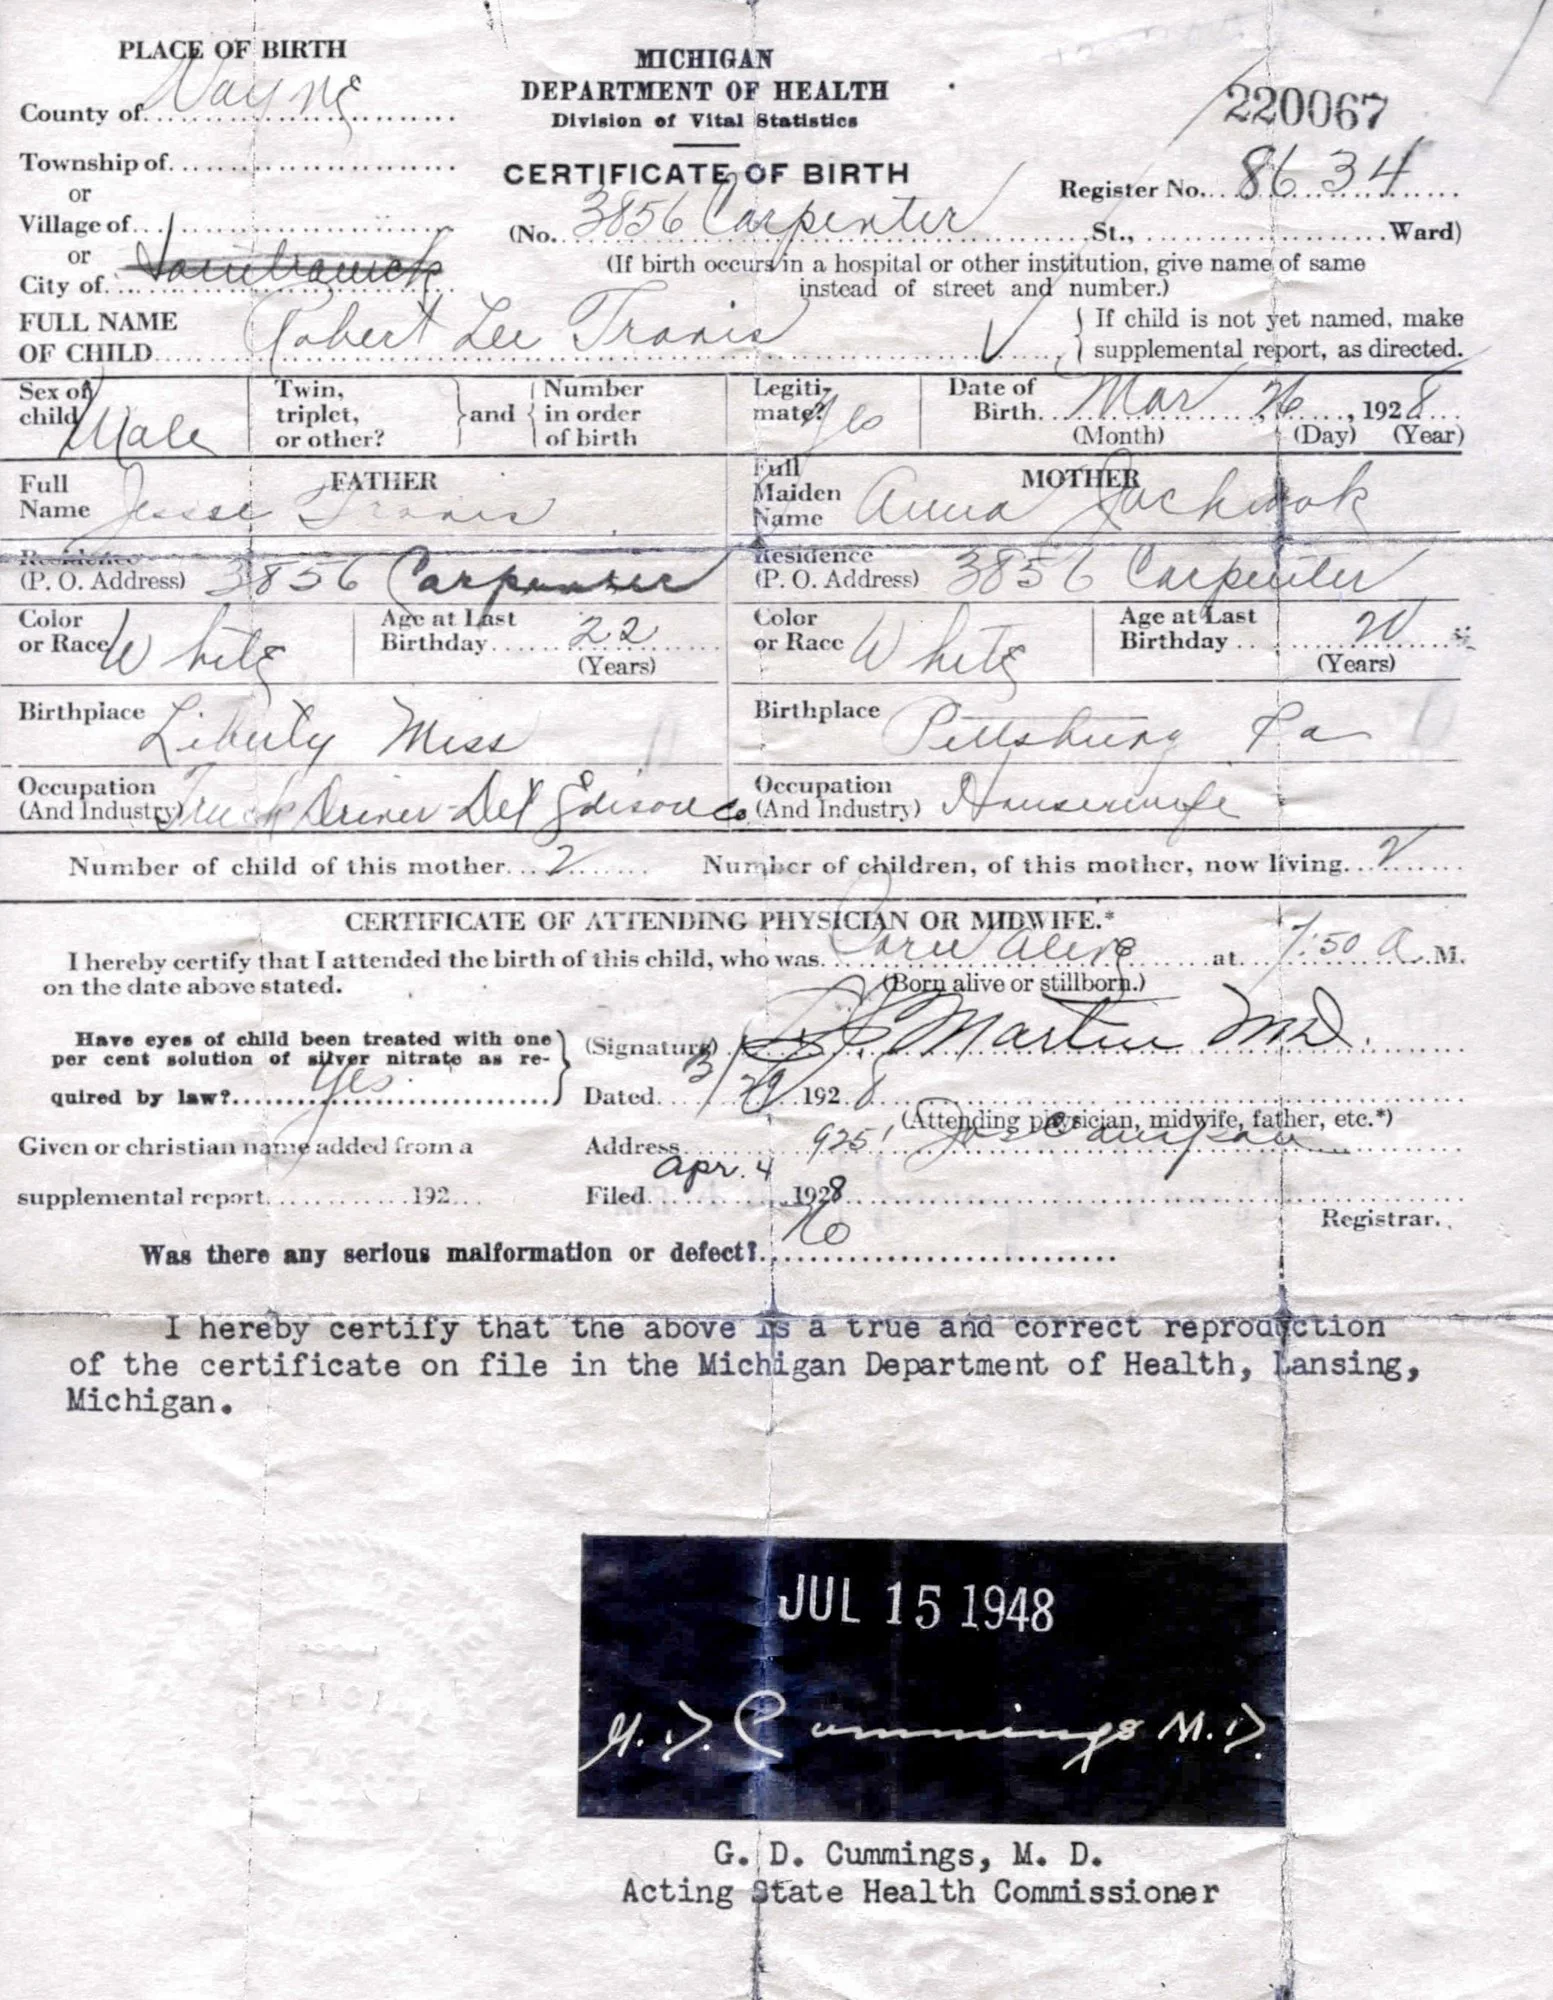 PLACE OF BIRTH
County of Wayne
Township of
or
Village of
or
City of
MICHIGAN
DEPARTMENT OF HEALTH
Division of Vital Statistics
CERTIFICATE OF BIRTH
220067
Register No. 8634
(No. 3856 Carpenter St., Ward)
(If birth occurs in a hospital or other institution, give name of same
instead of street and number.)
FULL NAME
OF CHILD Robert Lee Travis
If child is not yet named, make
supplemental report, as directed.
Sex of
child Male
Twin,
triplet,
or other?
and
Number
in order
of birth
Legiti-
mate? Yes
Date of
Birth Mar 26, 1928
(Month) (Day) (Year)
FATHER
Full
Name Jesse Travis
MOTHER
Full
Maiden
Name Anna
Residence
(P. O. Address) 3856 Carpenter
Residence
(P. O. Address) 3856 Carpenter
Color
or Race White
Age at Last
Birthday 22
(Years)
Color
or Race White
Age at Last
Birthday 20
(Years)
Birthplace Liberty Miss
Birthplace Pittsburg Pa
Occupation
(And Industry) Truck Driver Det Edison Co
Occupation
(And Industry) Housewife
Number of child of this mother 2 Number of children, of this mother, now living 2
CERTIFICATE OF ATTENDING PHYSICIAN OR MIDWIFE.*
I hereby certify that I attended the birth of this child, who was Born Alive at 7:50 A. M.
on the date above stated. (Born alive or stillborn.)
Have eyes of child been treated with one
per cent solution of silver nitrate as re-
quired by law? Yes
(Signature) Martin MD.
Dated 3/29 1928
(Attending physician, midwife, father, etc.*)
Given or christian name added from a
supplemental report 192
Address 9251 Jos Campau
Filed Apr. 4 1928
Registrar.
Was there any serious malformation or defect? No
I hereby certify that the above is a true and correct reproduction
of the certificate on file in the Michigan Department of Health, Lansing,
Michigan.
JUL 15 1948
G. D. Cummings M.D.
G. D. Cummings, M. D.
Acting State Health Commissioner